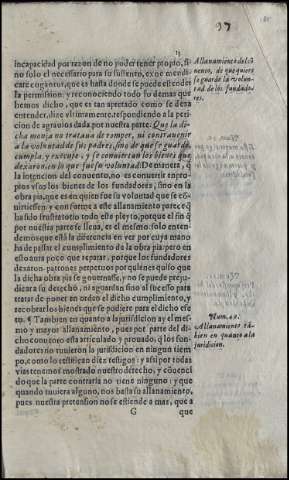 97
13
incapacidad por razon de no poder tener propio, si
no solo el necessario para su sustento, ex quo mendi
care cogantur, que es hasta donde se puede estender
la permission: y reconociendo todo lo demas que
hemos dicho, que es tan apretado como se dexa
entender, dize vltimamente, respondiendo a la peti
cion de agrauios dada por nuestra parte: Que la di
cha monja no trataua de romper, ni contrauenir
a la voluntad de sus padres, sino de que se guarde,
cumpla, y execute, y se conuiertan los bienes que
dexaron, en lo que fue su voluntad: De manera, q
la intencion del conuento, no es conuertir en pro
pios vsos los bienes de los fundadores, sino en la
obra pia, que es en quien fue su voluntad que se co
uirtiessen: y con forme a este allanamiento parece q
ha sido frustratorio todo este pleyto, porque el fin q
por nuestra parte se lleua, es el mesmo: solo enten
demos que està la diferencia en ver por cuya mano
ha de passar el cumplimiento de la obra pia: pero en
esto aura poco que reparar, porque los fundadores
dexaron patronos perpetuos por quien es quiso que
la dicha obra pia se gouernasse, y no se puede perju-
dicar a su derecho, ni aguardan sino al sucesso para
tratar de poner en orden el dicho cumplimiento, y
recobrar los bienes que se pudiere para dicho efe-
to. ¶ Tambien en quanto a la jurisdicion ay el mes
mo y mayor allanamiento, pues por parte del di-
cho conuento està articulado y prouado, q los fon-
dadores no tuuieron la jurisdicion en ningun tiem
po, como lo testifican diez testigos: y assi por todas
vias tenemos mostrado nuestro derecho, y conocido
que la parte contraria no tiene ninguno: y que
quando tuuiera alguno, nos basta su allanamiento,
pues nuestra pretension no se estiende a mas, que a
G que
Allanamiento del cõ
uento, de que quiere
se guarde la volun-
tad de los fundado-
res.
Num. 42.
Allanamiento tã-
bien en quanto a la
juridicion.